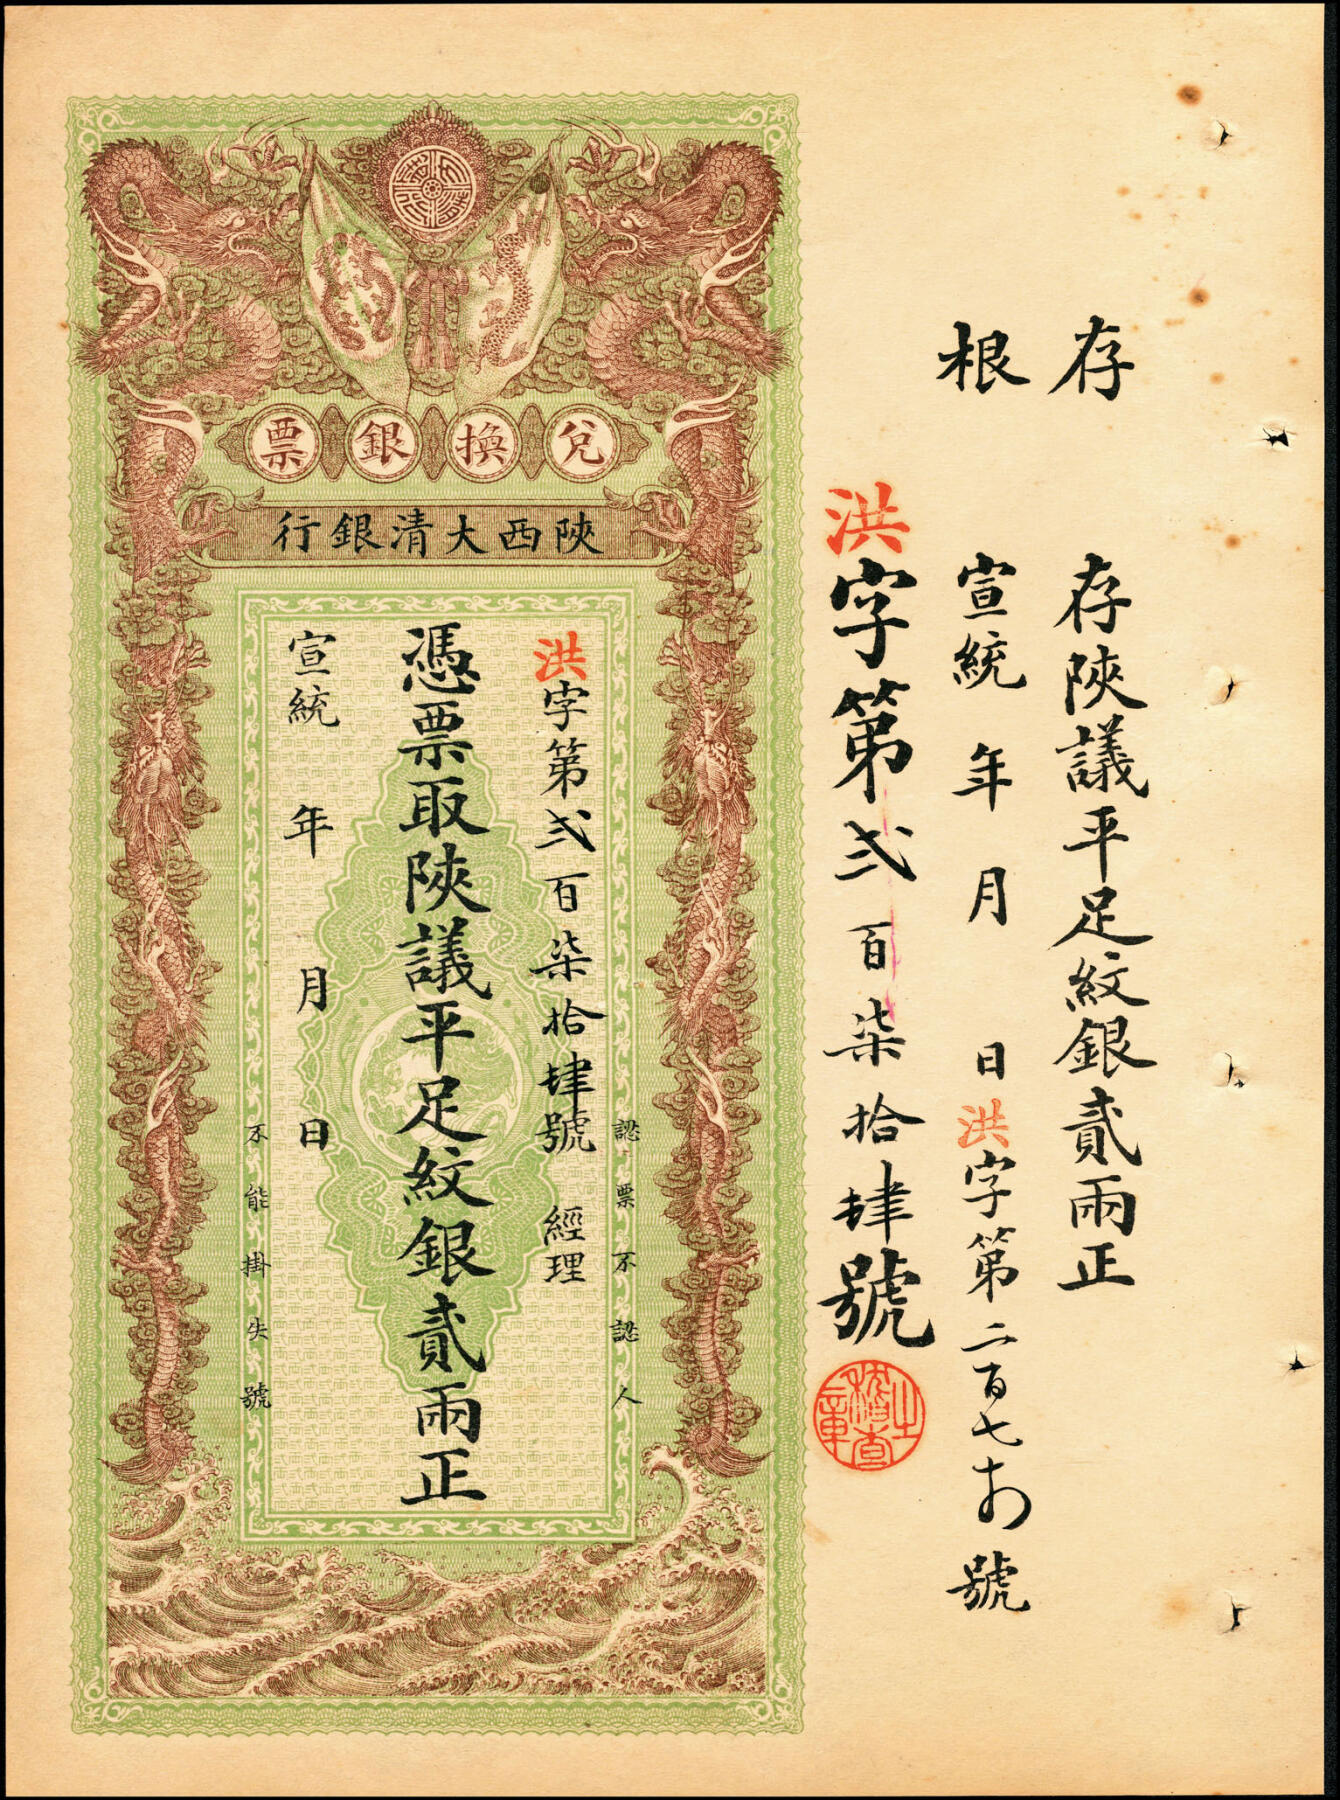 存根
存陝議平足紋銀貳兩正
宣統 年 月 日 洪字第二百七十4號
洪字第弍百柒拾肆號
稽查之章
兌換銀票
陝西大清銀行
認票不認人
洪字第弍百柒拾肆號 經理
憑票取陝議平足紋銀貳兩正
宣統 年 月 日
不能掛失號